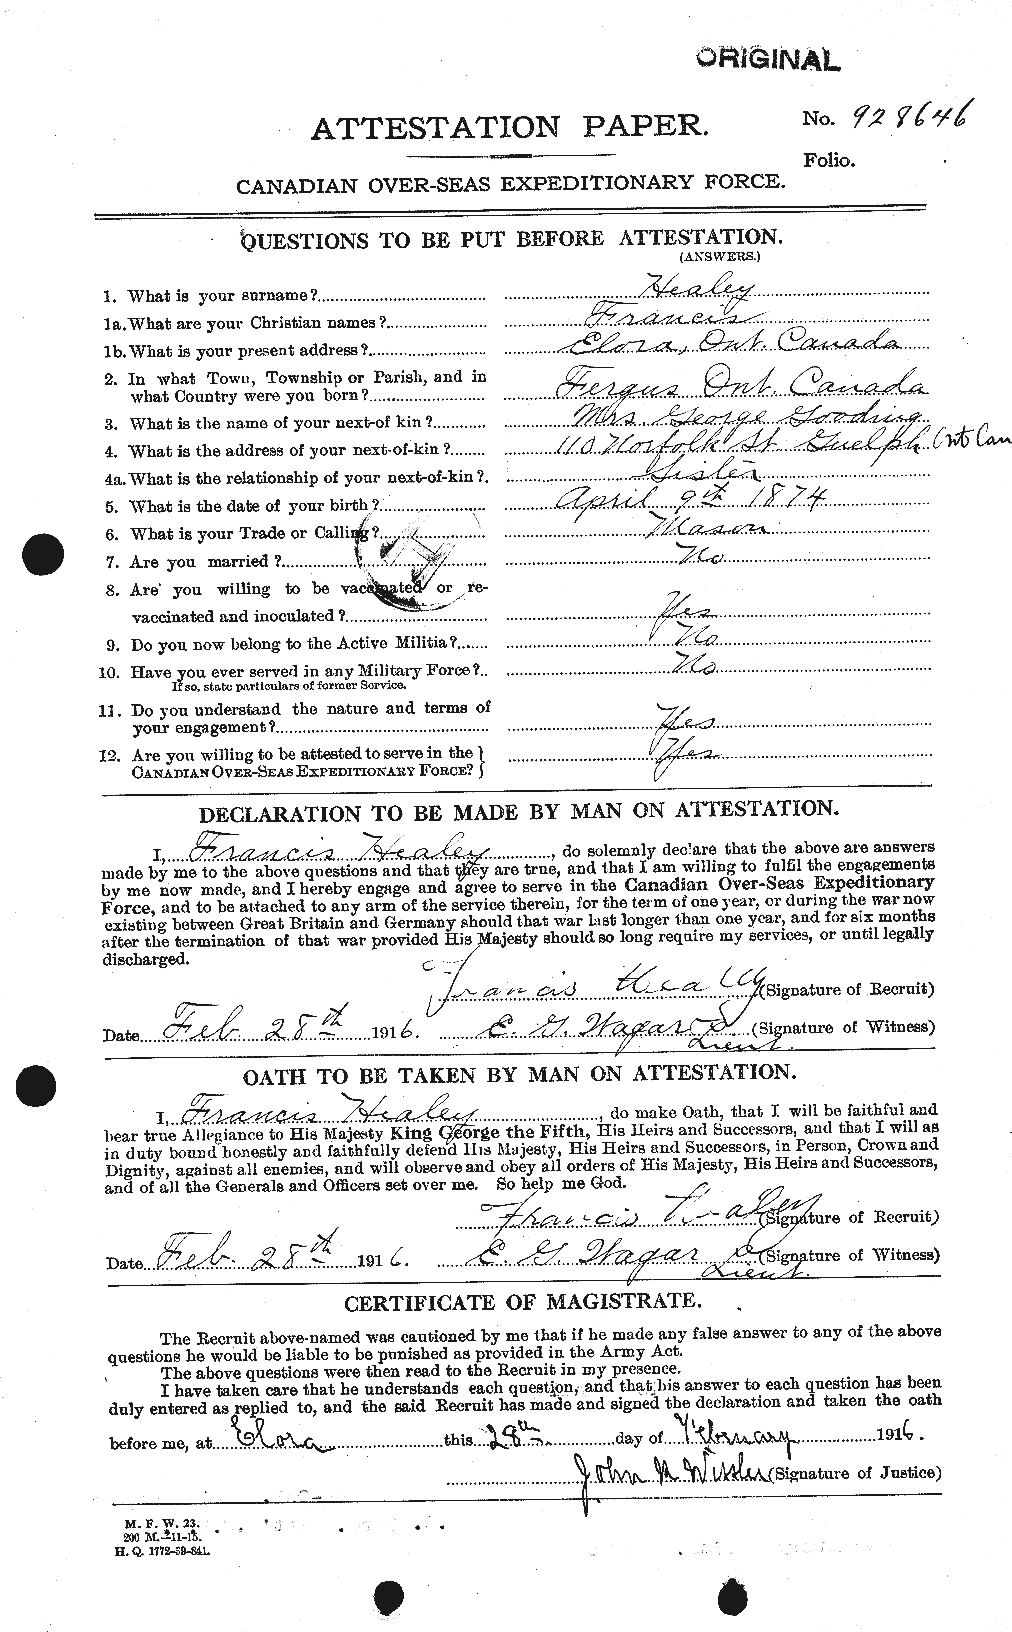 ORIGINAL
No. 928646
ATTESTATION PAPER.
Folio.
CANADIAN OVER-SEAS EXPEDITIONARY FORCE.
QUESTIONS TO BE PUT BEFORE ATTESTATION.
(ANSWERS.)
1. What is your surname? Healey
1a. What are your Christian names? Francis
1b. What is your present address? Elora, Ont. Canada
2. In what Town, Township or Parish, and in
what Country were you born? Fergus Ont. Canada
3. What is the name of your next-of kin? Mrs George Gooding
4. What is the address of your next-of-kin? 110 Norfolk St. Guelph Ont Can
4a. What is the relationship of your next-of-kin? Sister
5. What is the date of your birth? April 9th 1874
6. What is your Trade or Calling? Mason
7. Are you married? No
8. Are you willing to be vaccinated or re-
vaccinated and inoculated? Yes
9. Do you now belong to the Active Militia? No
10. Have you ever served in any Military Force? No
If so, state particulars of former Service.
11. Do you understand the nature and terms of
your engagement? Yes
12. Are you willing to be attested to serve in the
CANADIAN OVER-SEAS EXPEDITIONARY FORCE? Yes
DECLARATION TO BE MADE BY MAN ON ATTESTATION.
I, Francis Healey, do solemnly declare that the above are answers
made by me to the above questions and that they are true, and that I am willing to fulfil the engagements
by me now made, and I hereby engage and agree to serve in the Canadian Over-Seas Expeditionary
Force, and to be attached to any arm of the service therein, for the term of one year, or during the war now
existing between Great Britain and Germany should that war last longer than one year, and for six months
after the termination of that war provided His Majesty should so long require my services, or until legally
discharged.
Francis Healey (Signature of Recruit)
Date Feb 28th 1916. E. G. Wagar (Signature of Witness)
Lieut.
OATH TO BE TAKEN BY MAN ON ATTESTATION.
I, Francis Healey, do make Oath, that I will be faithful and
bear true Allegiance to His Majesty King George the Fifth, His Heirs and Successors, and that I will as
in duty bound honestly and faithfully defend His Majesty, His Heirs and Successors, in Person, Crown and
Dignity, against all enemies, and will observe and obey all orders of His Majesty, His Heirs and Successors,
and of all the Generals and Officers set over me. So help me God.
Francis Healey (Signature of Recruit)
Date Feb. 28th 1916. E. G. Wagar (Signature of Witness)
Lieut.
CERTIFICATE OF MAGISTRATE.
The Recruit above-named was cautioned by me that if he made any false answer to any of the above
questions he would be liable to be punished as provided in the Army Act.
The above questions were then read to the Recruit in my presence.
I have taken care that he understands each question, and that his answer to each question has been
duly entered as replied to, and the said Recruit has made and signed the declaration and taken the oath
before me, at Elora this 28th day of February 1916.
John (Signature of Justice)
M. F. W. 23.
200 M.-11-15.
H. Q. 1772-39-841.